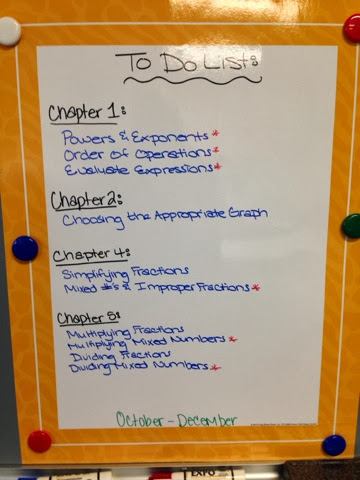 To Do List:
Chapter 1:
Powers & Exponents*
Order of Operations*
Evaluate Expressions*
Chapter 2:
Choosing the Appropriate Graph
Chapter 4:
Simplifying Fractions
Mixed #'s & Improper Fractions*
Chapter 5:
Multiplying Fractions
Multiplying Mixed Numbers*
Dividing Fractions
Dividing Mixed Numbers*
October - December
EXPO